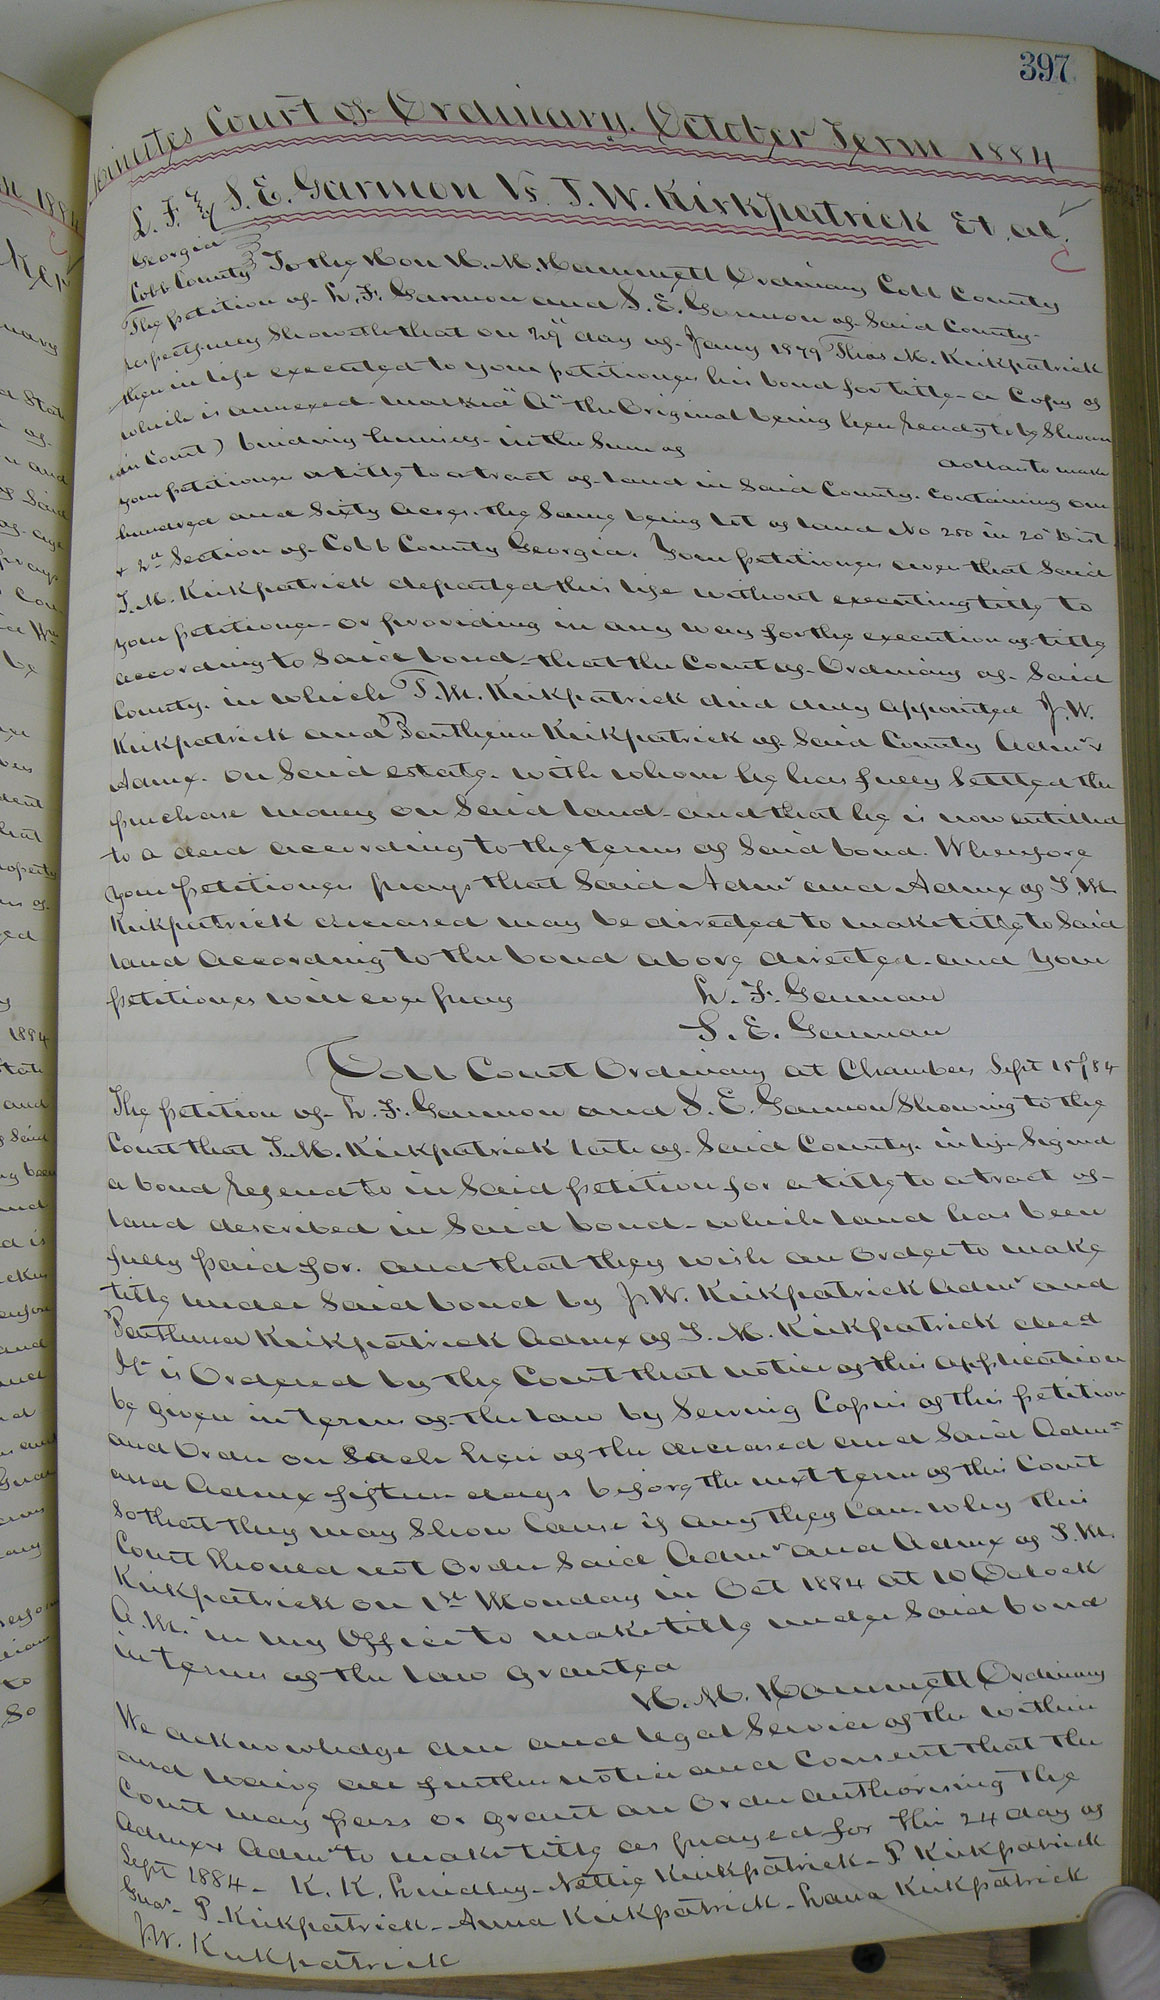 397
Minutes Court of Ordinary. October Term 1884
L. F. & S. E. Garmon Vs. J. W. Kirkpatrick Et. al.
Georgia
Cobb County To the Hon H. M. Hammett Ordinary Cobb County
The petition of L. F. Garmon and S. E. Garmon of Said County
respectfully Showeth that on 29" day of Jany 1879 Thos M. Kirkpatrick
then in life executed to your petitioner his bond for title a Copy of
which is annexed marked "A" the Original being here ready to be Shown
in Court) binding himself in the Sum of dollars to make
your petitioner a title to a tract of land in Said County. Containing one
hundred and Sixty acres. the Same being lot of land No 250 in 20" Dist
& 2d Section of Cobb County Georgia. Your petitioner aver that Said
T. M. Kirkpatrick departed this life without executing title to
your petitioner or providing in any way for the execution of title
according to Said bond that the Court of Ordinary of Said
County. in which T. M. Kirkpatrick died duly appointed J. W.
Kirkpatrick and Parthena Kirkpatrick of Said County Admr &
Admx. on Said estate. with whom he has fully Settled the
purchase money on Said land and that he is now entitled
to a deed according to the terms of Said bond. Wherefore
your petitioner prays that Said Admr and Admx of T. M.
Kirkpatrick deceased may be directed to make title to Said
land According to the bond above directed and your
petitioner will ever pray L. F. Garmon
S. E. Garmon
Cobb Court Ordinary at Chambers Sept 15/84
The petition of L. F. Garmon and S. E. Garmon Showing to the
Court that T. M. Kirkpatrick late of Said County. in life Signed
a bond refered to in Said petition for a title to a tract of
land described in Said bond which land has been
fully paid for. and that they wish an order to make
title under Said bond by J. W. Kirkpatrick Admr and
Parthena Kirkpatrick Admx of T. M. Kirkpatrick decd
It is Ordered by the Court that notice of this application
be given in terms of the law by Serving Copies of this petition
and Order on Each heir of the deceased and Said Admr
and Admx fifteen days before the next term of this Court
So that they may Show Cause if any they Can. why this
Court Should not Order Said Admr and Admx of T. M.
Kirkpatrick on 1st Monday in Oct 1884 at 10 Oclock
A. M. in my Office to make title under Said bond
in terms of the law granted
H. M. Hammett Ordinary
We acknowledge due and legal Service of the within
and waive all further notice and Consent that the
Court may pass or grant an Order authorising the
Admx & Admr to make title as prayed for This 24 day of
Sept 1884 K. K. Lindley Nettie Kirkpatrick P Kirkpatrick
Guar. P. Kirkpatrick Anna Kirkpatrick Kirkpatrick
J. W. Kirkpatrick